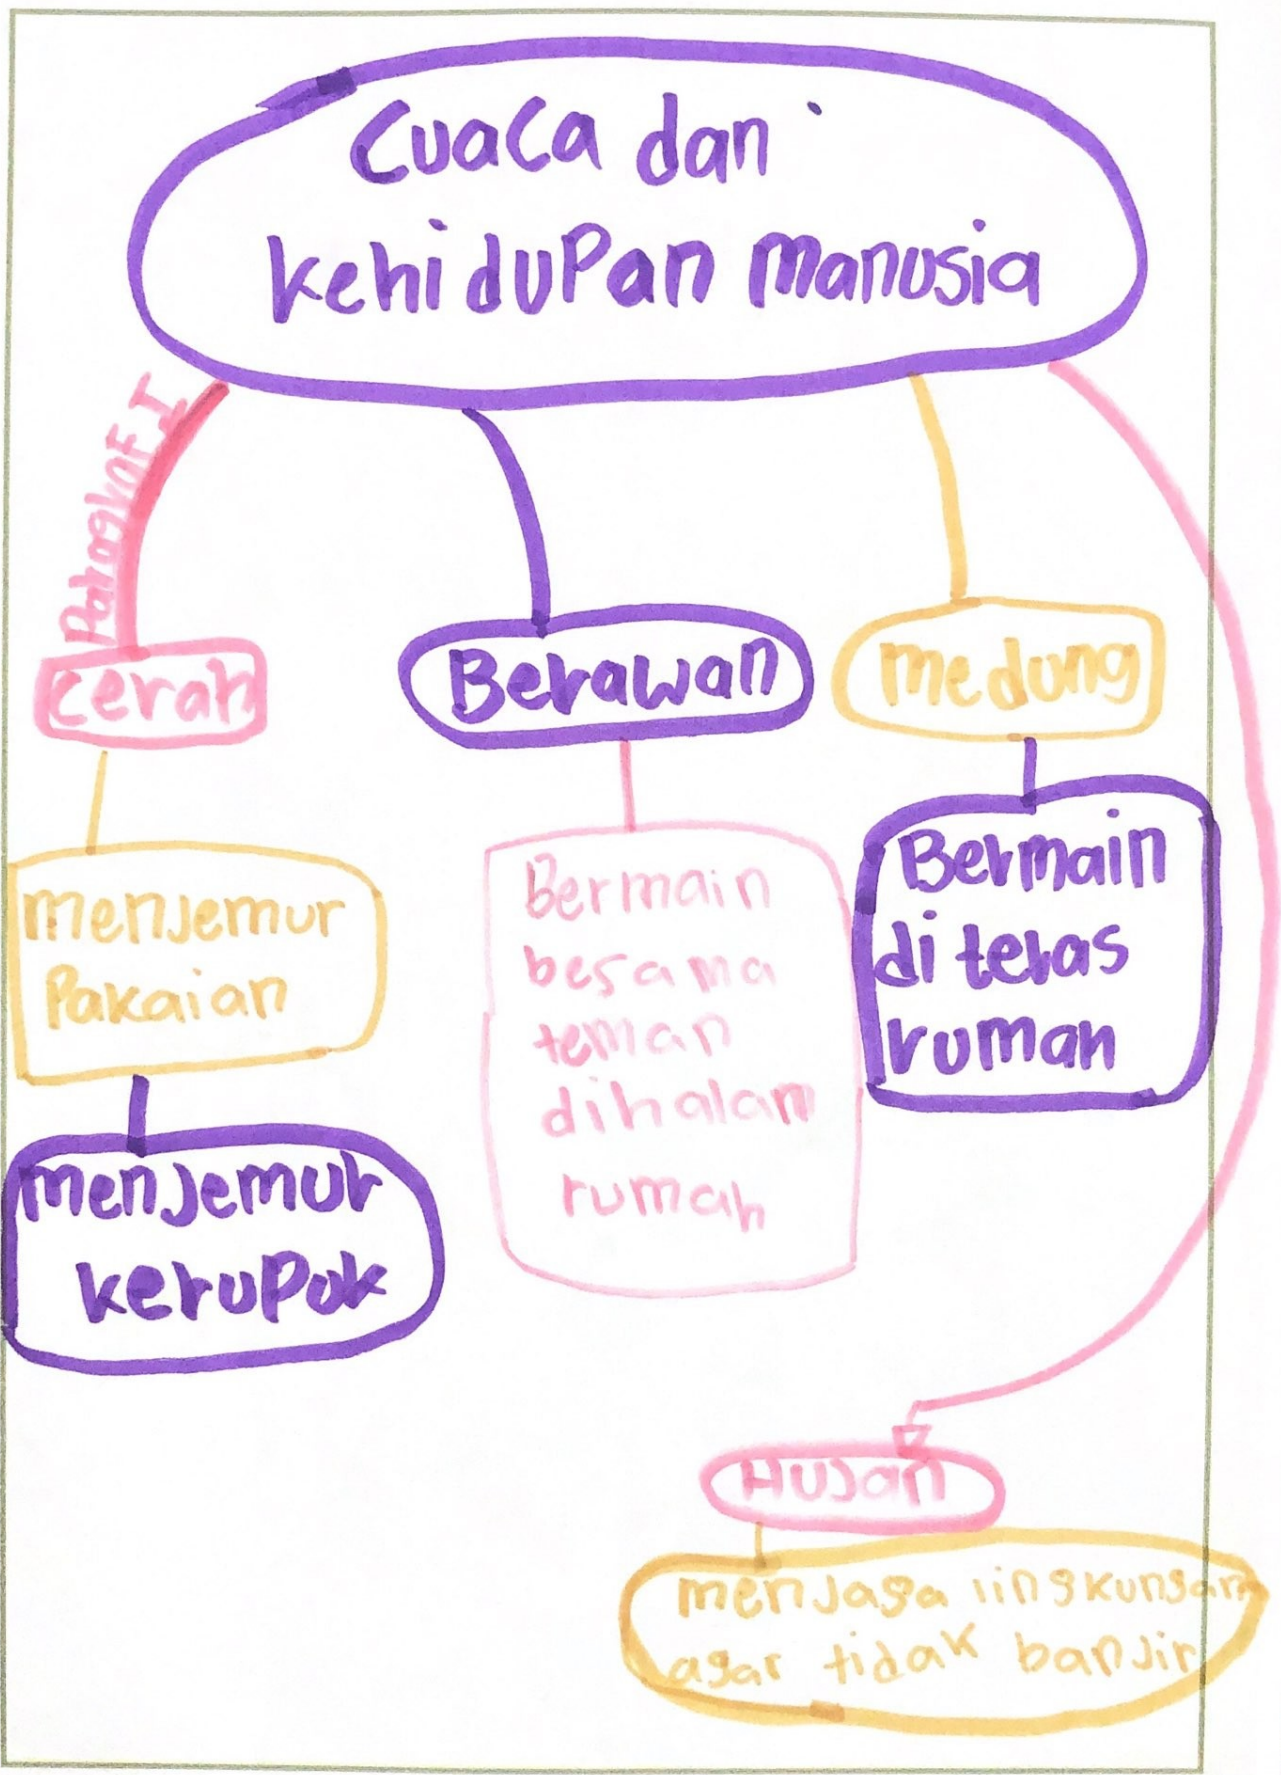 Cuaca dan
kehidupan manusia
Paragraf I
cerah
Berawan
medung
menjemur
Pakaian
Bermain
besama
teman
dihalam
rumah
Bermain
di teras
rumah
menjemur
kerupuk
Hujan
menjaga lingkungan
agar tidak banjir